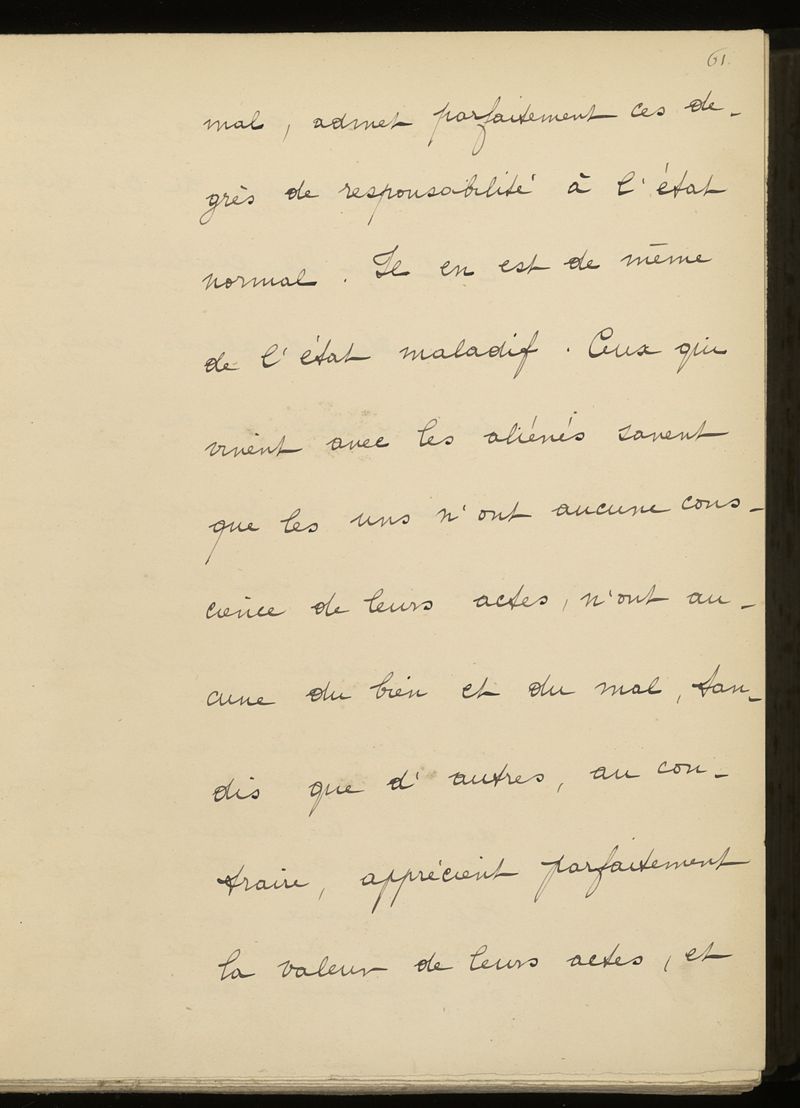 61.
mal, admet parfaitement ces de-
grès de responsabilité à l'état
normal. Il en est de même
de l'état maladif. Ceux qui
vivent avec les aliénés savent
que les uns n'ont aucune cons-
cience de leurs actes, n'ont au-
cune du bien et du mal, tan-
dis que d'autres, au con-
traire, apprécient parfaitement
la valeur de leurs actes, et